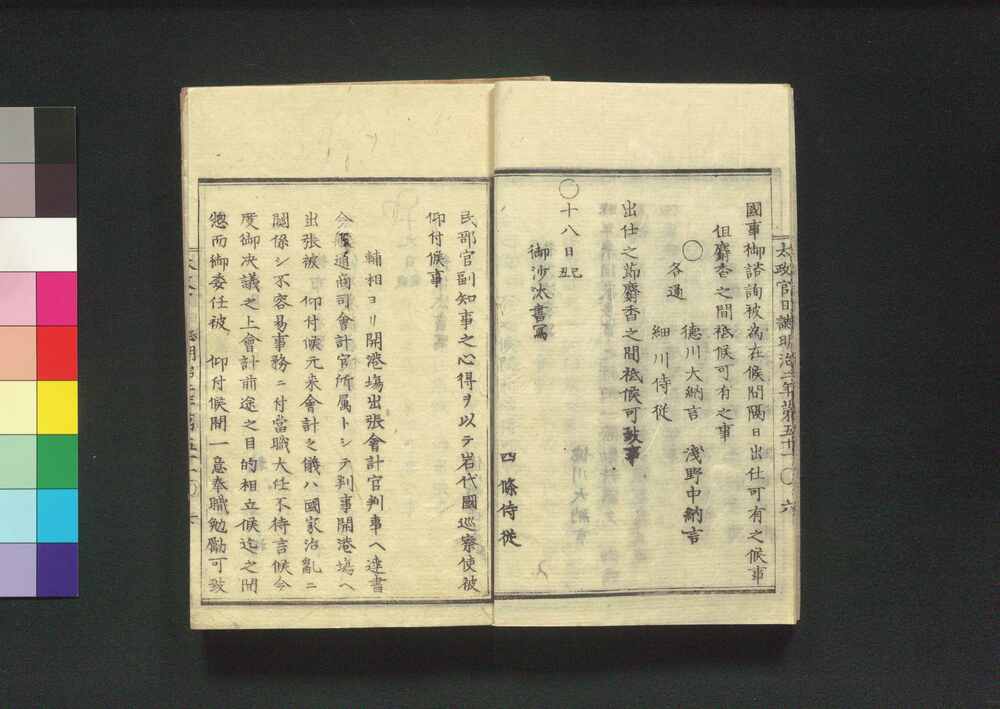 太政官日誌明治二年第五十一 〇 六
國事御諮詢被為在候間隔日出仕可有之候事
但麝香之間祗候可有之事
〇
各通
德川大納言 淺野中納言
細川侍從
出仕之節麝香之間祗候可致事
〇十八日 己巳
御沙汰書寫
四條侍從
民部官副知事之心得ヲ以テ岩代國巡察使被
仰付候事
輔相ヨリ開港場出張會計官判事ヘ達書
今度通商司會計官所属トシテ判事開港場ヘ
出張被 仰付候元来會計之儀ハ國家治亂ニ
關係シ不容易事務ニ付當職大任不待言候今
度御决議之上會計前途之目的相立候迄之間
惣而御委任被 仰付候間一意奉職勉勵可致